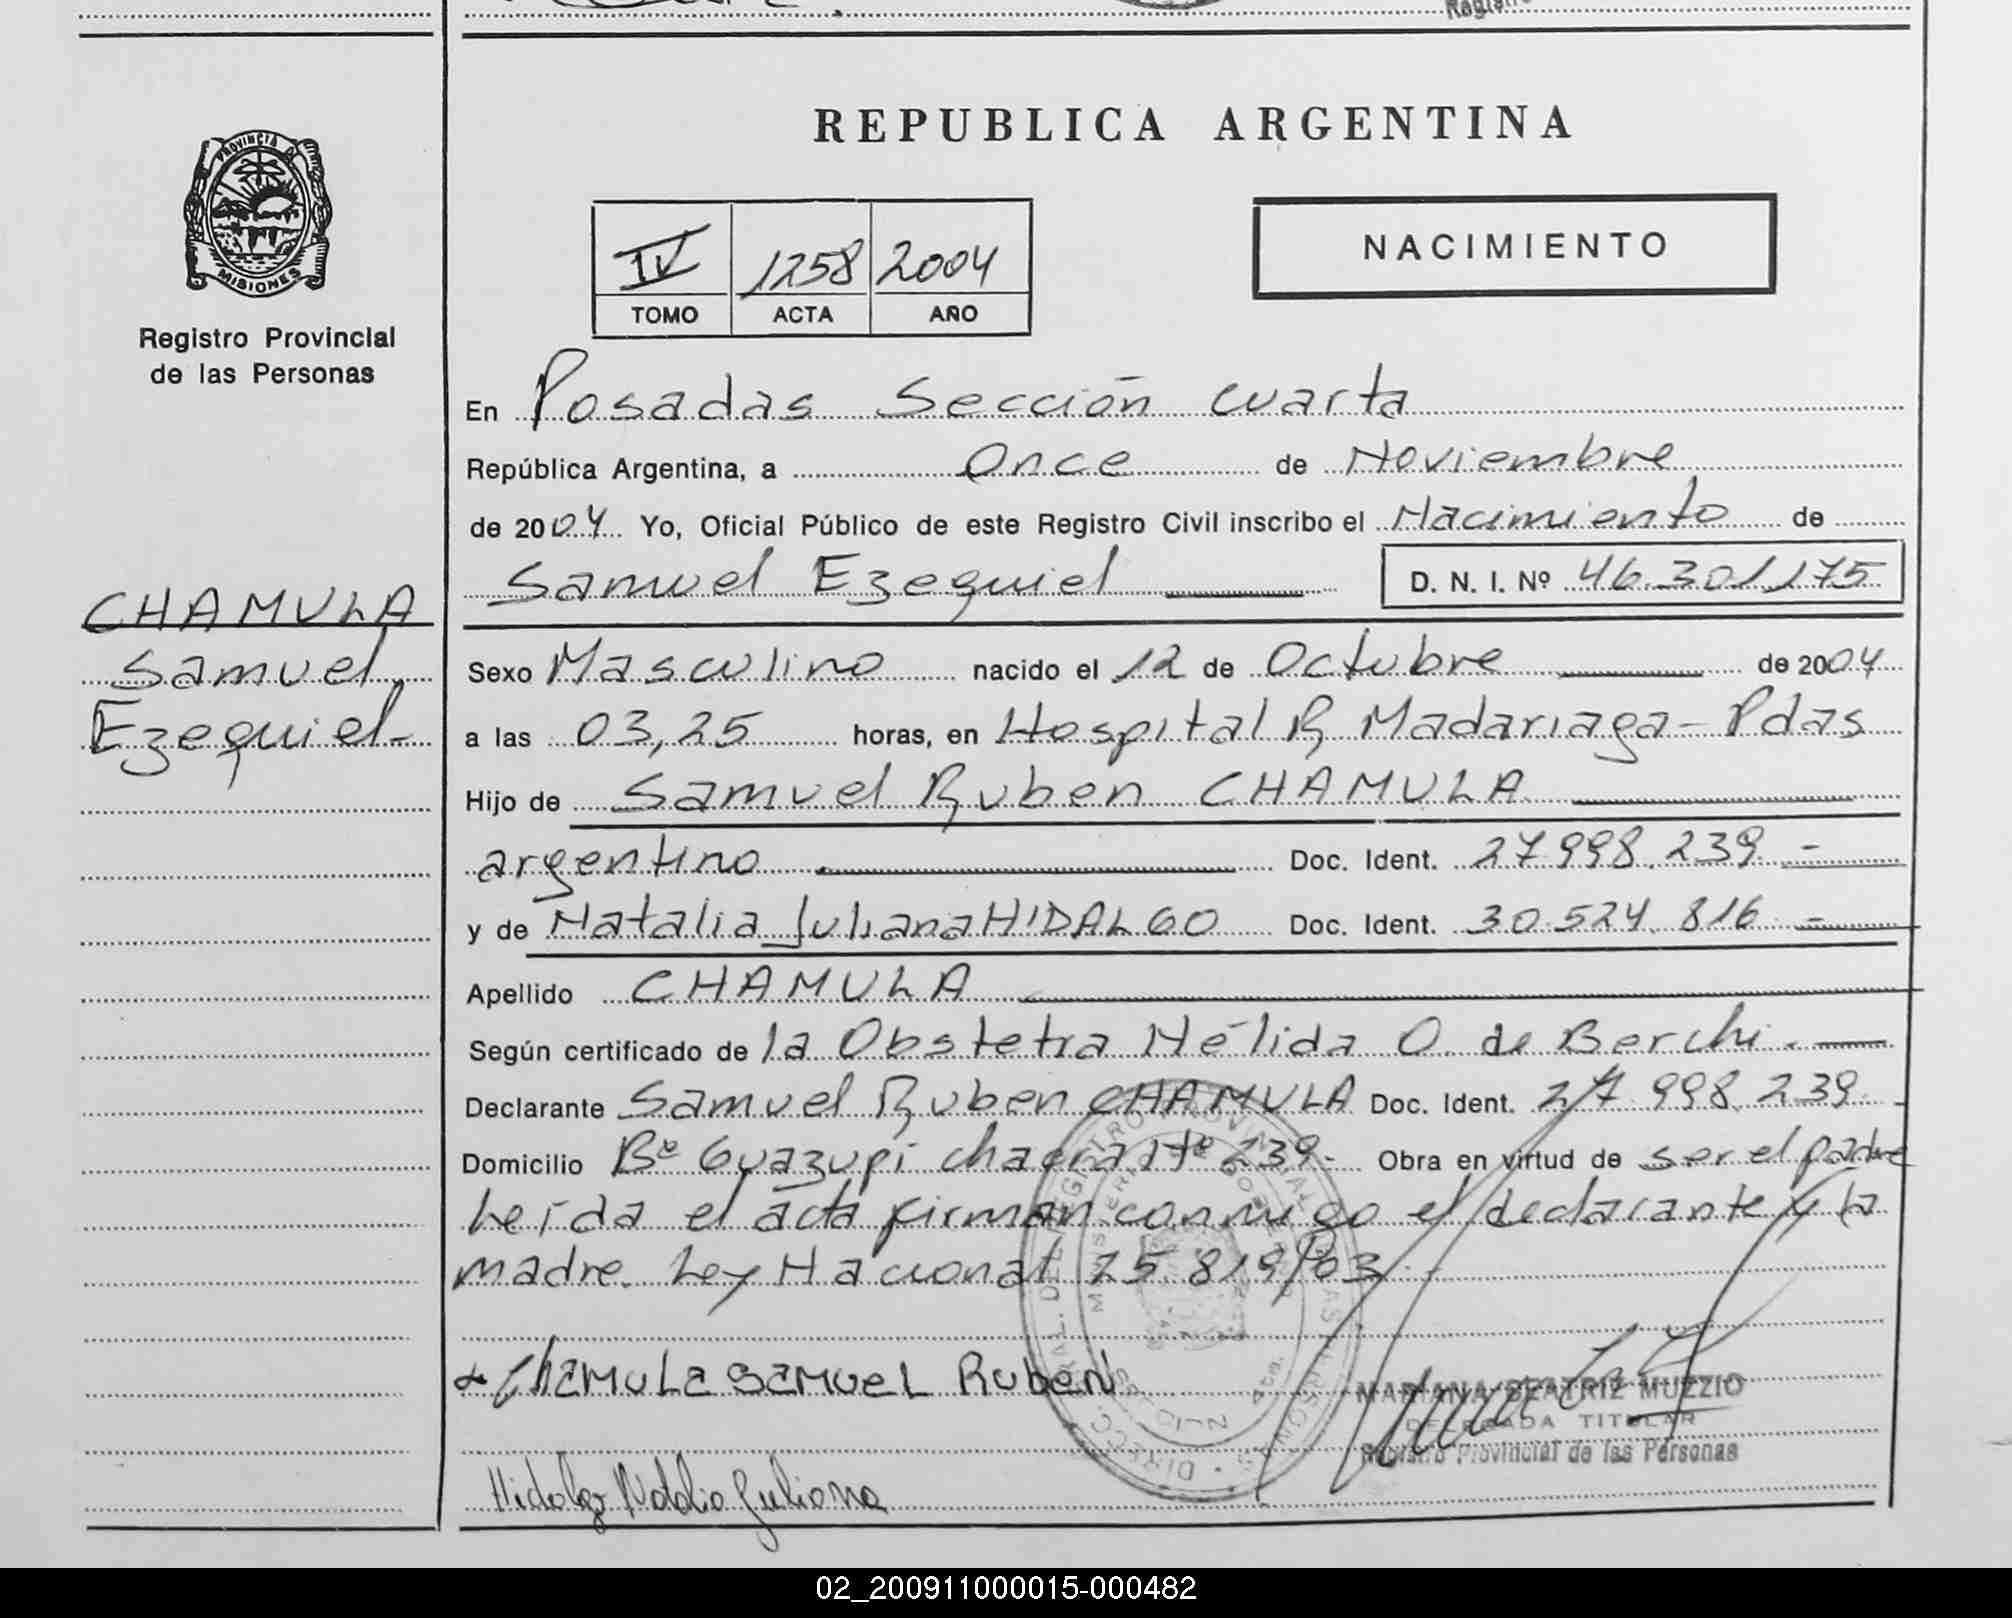 REPUBLICA ARGENTINA
PROVINCIA DE
MISIONES
Registro Provincial
de las Personas
IV 1258 2004
TOMO ACTA AÑO
NACIMIENTO
En Posadas Sección Cuarta
República Argentina, a Once de Noviembre
de 2004 Yo, Oficial Público de este Registro Civil inscribo el Nacimiento de
Samuel Ezequiel D. N. I. Nº 46.301.175
CHAMULA
Samuel
Ezequiel-
Sexo Masculino nacido el 12 de Octubre de 2004
a las 03,25 horas, en Hospital R. Madariaga - Pdas
Hijo de Samuel Ruben CHAMULA
argentino Doc. Ident. 27.998.239 -
y de Natalia Juliana HIDALGO Doc. Ident. 30.524.816 -
Apellido CHAMULA
Según certificado de la Obstetra Nélida O. de Berchi.
Declarante Samuel Ruben CHAMULA Doc. Ident. 27.998.239.-
Domicilio Bº Guazupi chacra Nº 239.- Obra en virtud de ser el padre
Leída el acta firman conmigo el declarante y la
madre. Ley Nacional 25.819/03
Chamula Samuel Ruben
MARIANA BEATRIZ MUZZIO
DELEGADA TITULAR
Registro Provincial de las Personas
Hidalgo Natalia Juliana
02_200911000015-000482